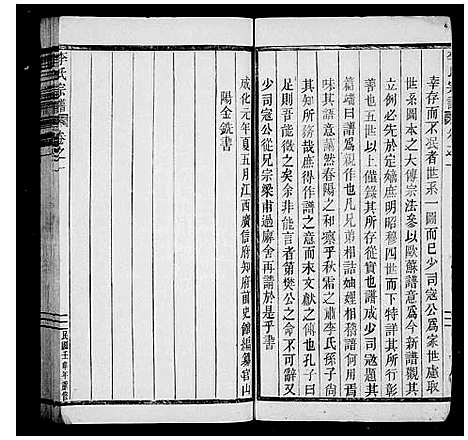 幸存而不泯者世系一圖而已少司寇公爲家世虛取
世系圖本之大傳宗法參以歐蘇譜意爲今新譜觀其
立例必先於定嫡庶明昭穆四世而下特詳其所行彰
善也五世以上僅錄其所存從實也譜成少司寇公
篇端曰譜爲親親作也幾兄弟相詰妯娌相稽譜何用焉
味其語藹然春陽之和凜乎秋霜之肅李氏孫子
其知所務哉庶得作譜之意而宋文獻之傳也孔子曰
足則吾能徵之矣余非能言者第樊公之命不可辭又
少司寇公從兄宗梁甫過廨舍再請於是乎書
成化元年夏五月江西廣信府知府前史館編纂官山
陽金銑書
李氏宗譜
卷之一